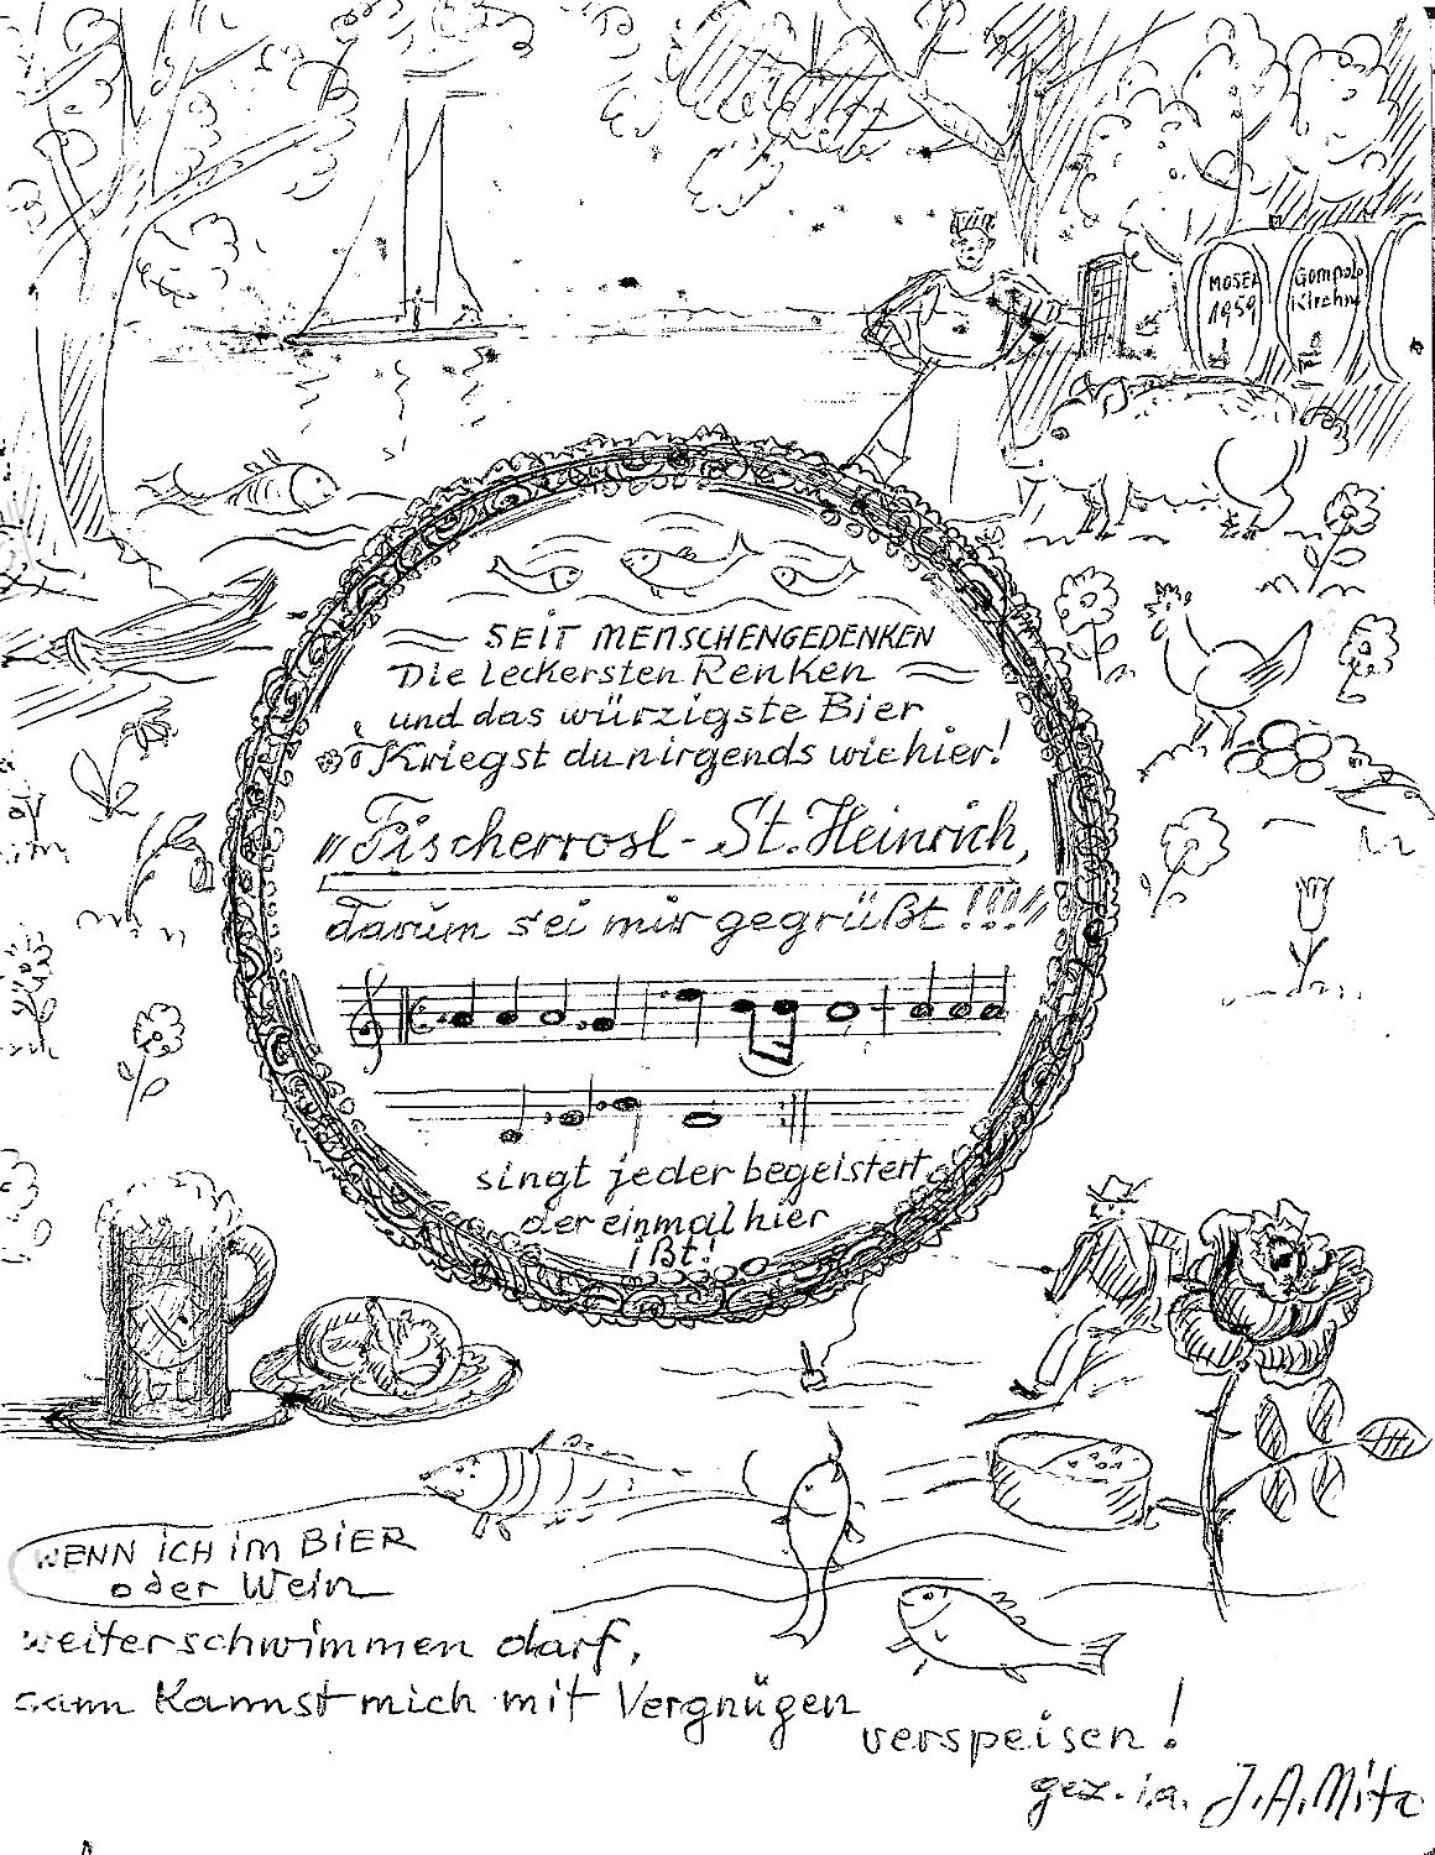 MOSEL
1959
Gumpolds
Kirchn
SEIT MENSCHENGEDENKEN
Die leckersten Renken
und das würzigste Bier
Kriegst du nirgends wie hier!
"Fischerrosl - St. Heinrich,
darum sei mir gegrüßt!!!"
singt jeder begeistert
der einmal hier
ißt!
WENN iCH im BiER
oder Wein
weiterschwimmen darf,
dann Kannst mich mit Vergnügen
verspeisen!
gez. i.a. J.A.Mitz